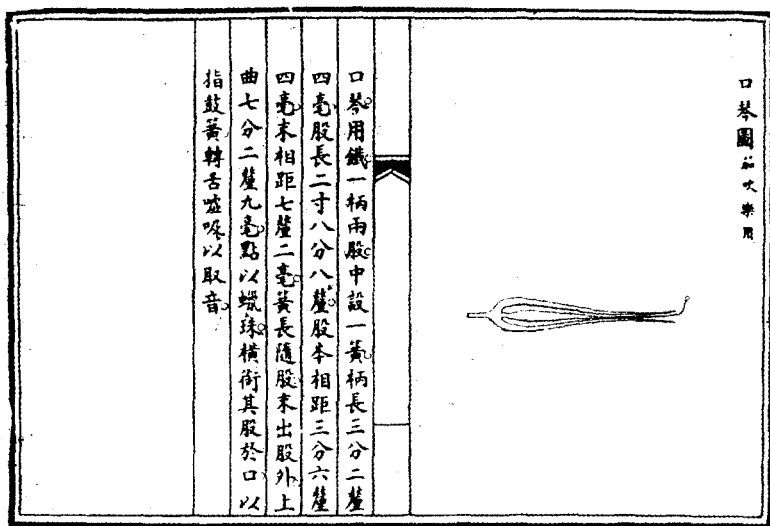 口琴圖笳吹樂用
口琴用鐵一柄兩股中設一簧柄長三分二釐
四毫股長二寸八分八釐股本相距三分六釐
四毫末相距七釐二毫簧長隨股末出股外上
曲七分二釐九毫點以蠟珠橫銜其股於口以
指鼓簧轉舌噓吸以取音